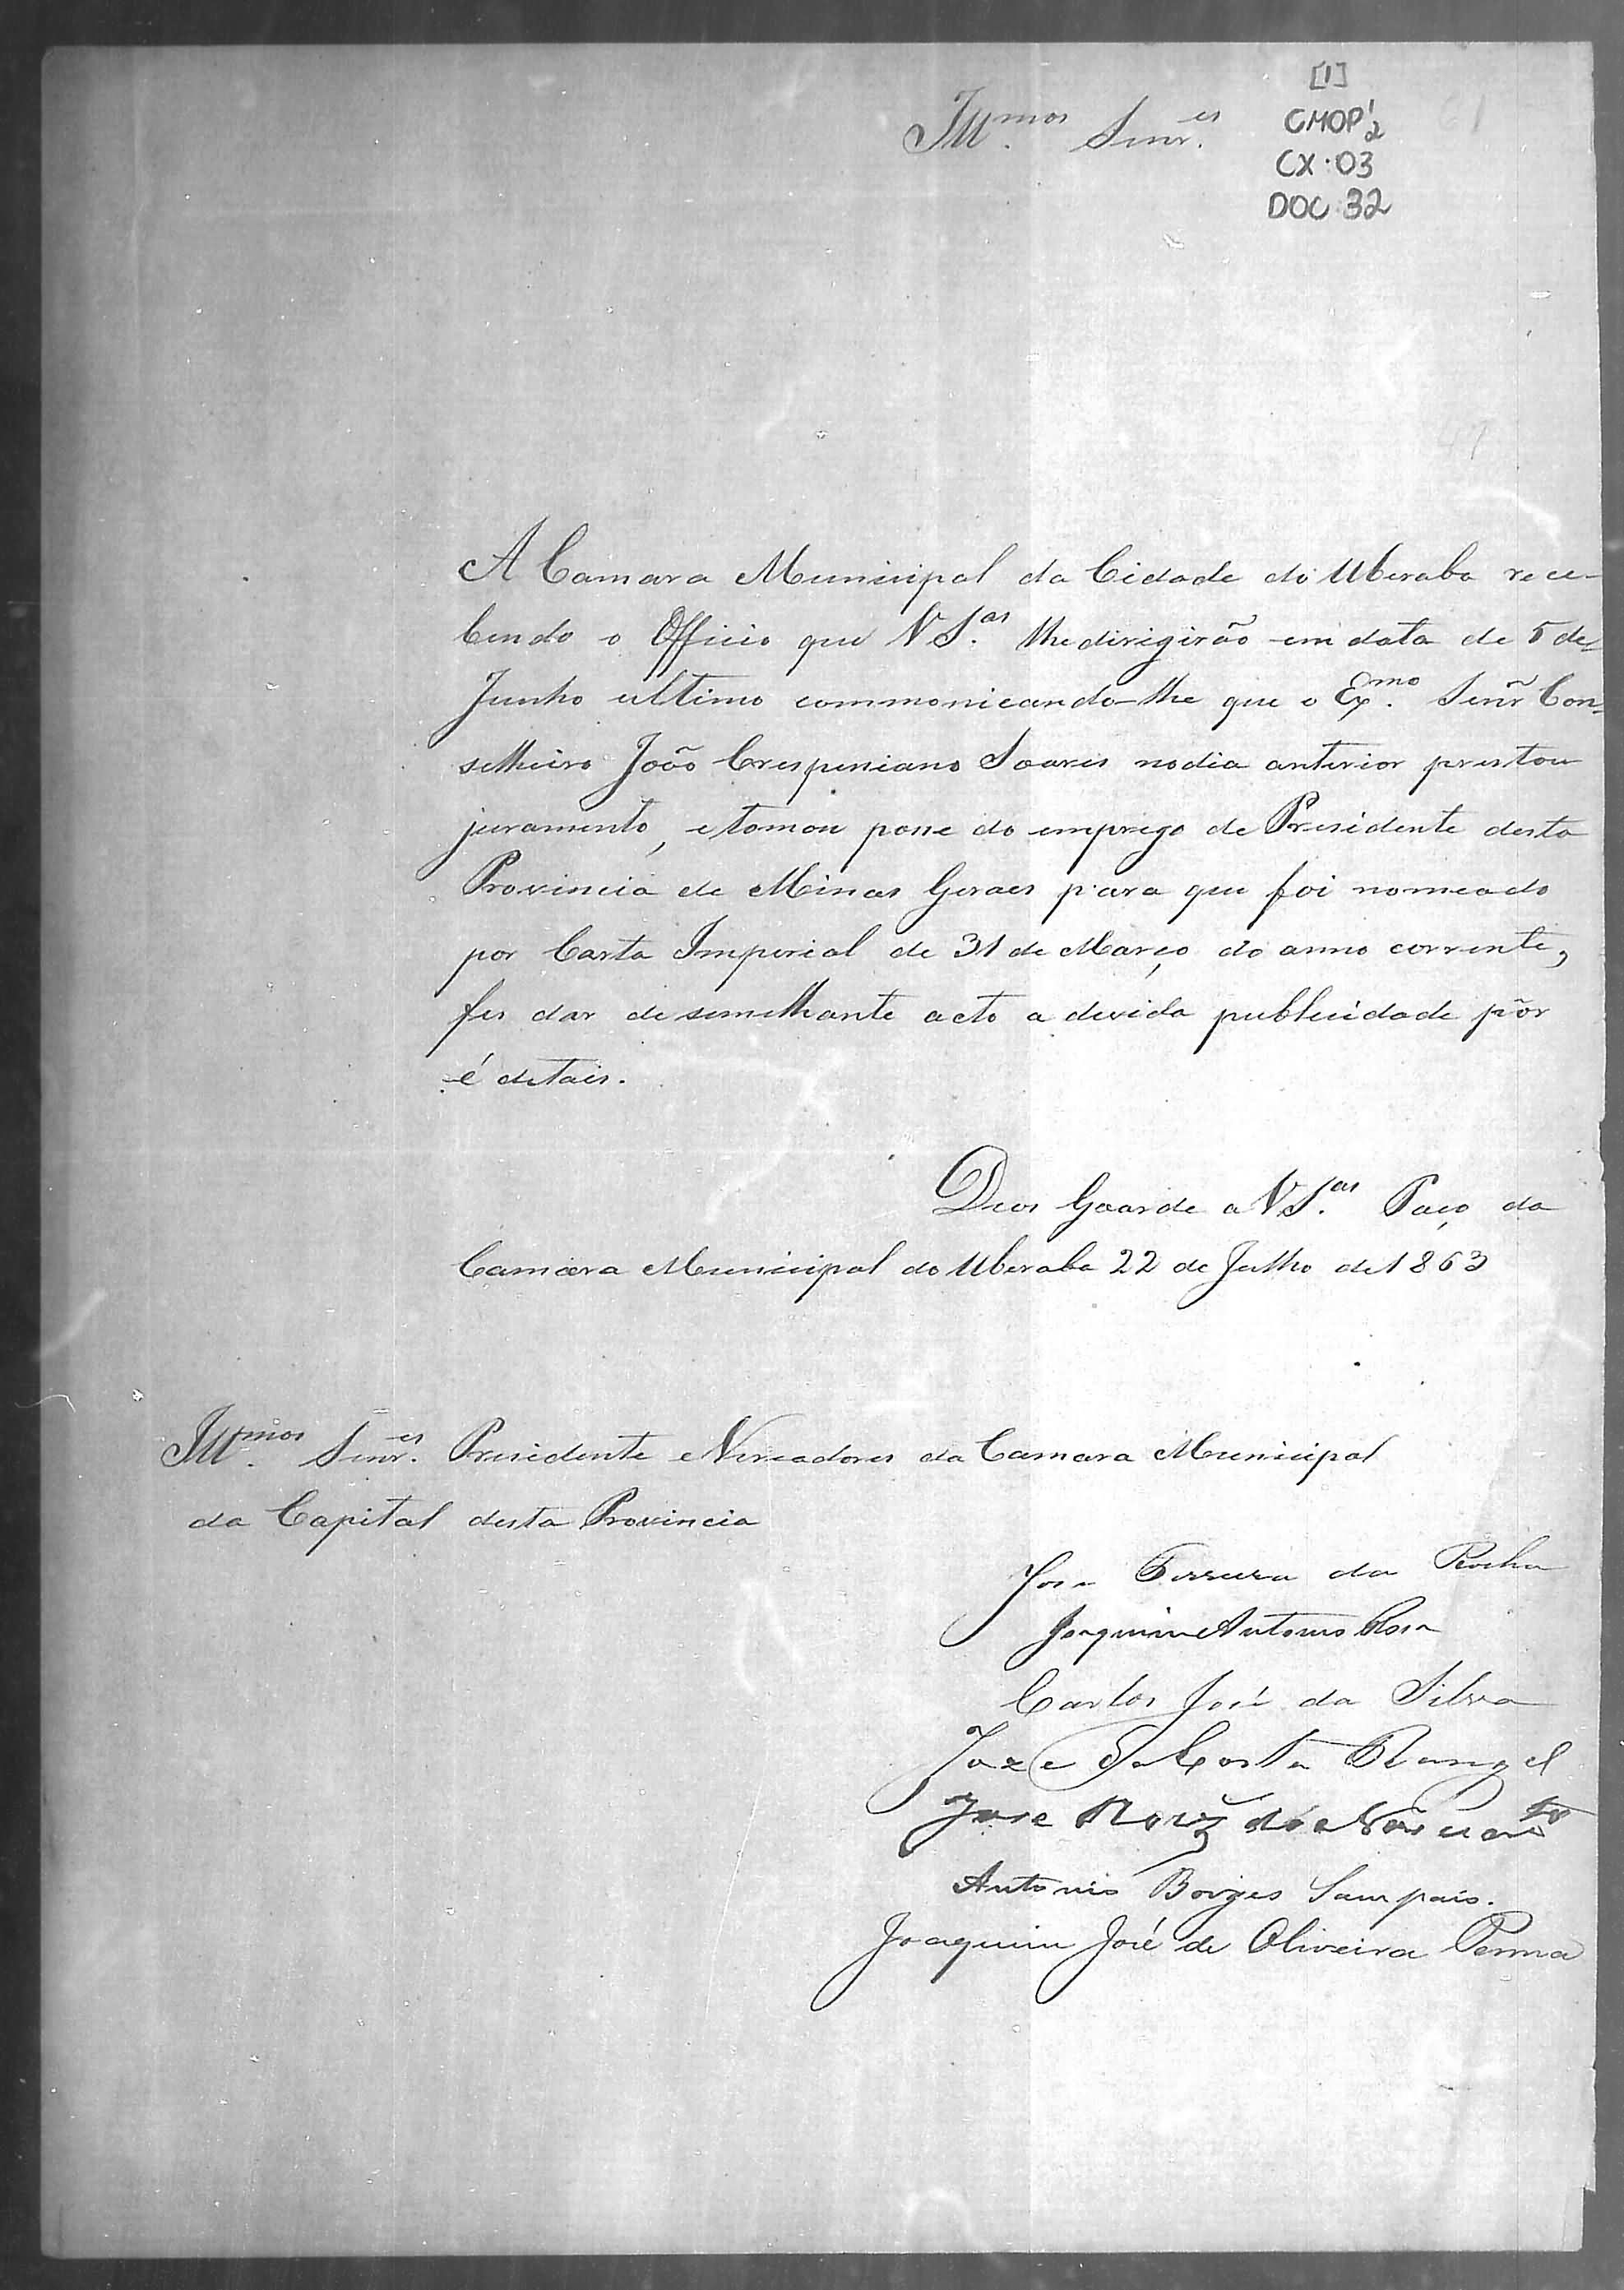 [1]
CMOP 1/2
CX. 03
DOC 32
Illmos. Senres.
A Camara Municipal da Cidade do Uberaba rece-
bendo o Officio que VSas. lhe dirigirão em data de 5 de
Junho ultimo commonicando-lhe que o Exmo. Señr Con-
selheiro João Crespeniano Soares no dia anterior prestou
juramento, e tomou posse do emprego de Presidente desta
Provincia de Minas Geraes para que foi nomeado
por Carta Imperial de 31 de Março do anno corrente,
fes dar de semelhante acto a devida publicidade por
é detais.
Deos Goarde a VSas. Paço da
Camara Municipal do Uberaba 22 de Julho de 1863
Illmos. Senres. Presidente e Vereadores da Camara Municipal
da Capital desta Provincia
Jose Ferreira da Rocha
Joaquim Antonio Rosa
Carlos José da Silva
Joze da Costa Rangel
Jose
Antonio Borges Sampaio.
Joaquim José de Oliveira Penna